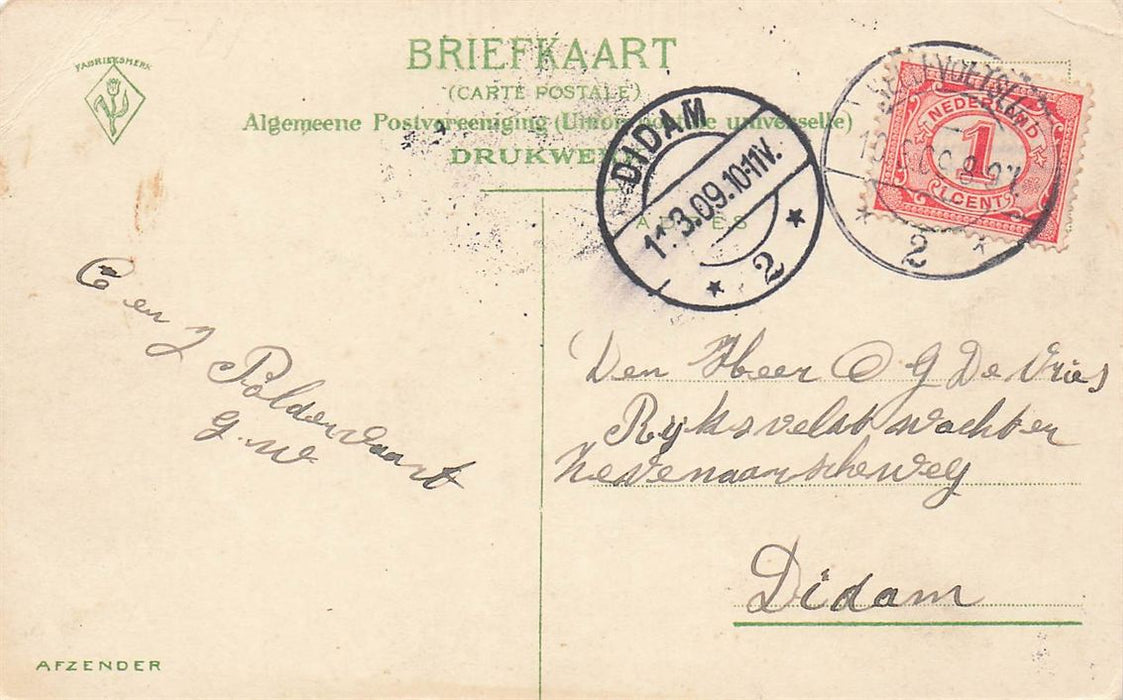 FABRIEKSMERK
BRIEFKAART
(CARTE POSTALE)
Algemeene Postvereeniging (Union postale universelle)
DRUKWERK
DIDAM
3.09.10-11V.
2
NEDERLAND
1
CENT
2
ADRES
C en J Poldervaart
G.W
Den Heer C G De Vries
Ryksveldtwachter
Zevenaarscheweg
Didam
AFZENDER